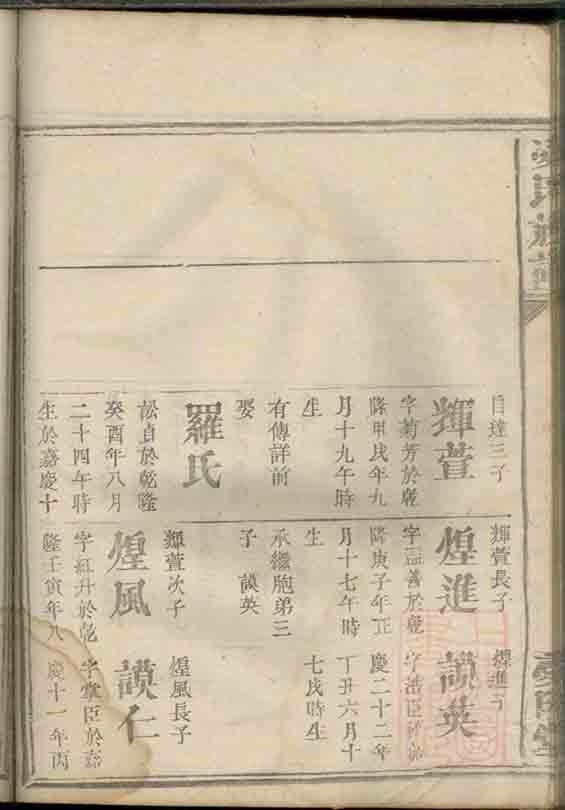 自達三子
輝萱
字菊芳於乾
隆甲戌年九
月十九午時
生
有傳詳前
娶
羅氏
訟貞於乾隆
癸酉年八月
二十四午時
生於嘉慶十
輝萱長子
煌進
字 善於乾
隆庚子年正
月十七午時
生
承繼胞弟三
子 謨英
輝萱次子
煌風
字紅升於乾
隆壬寅年八
煌進子
謨英
字浩臣
慶二十二年
丁丑六月十
七戌時生
煌風長子
謨仁
字掌臣於嘉
慶十一年丙
氏族譜
堂